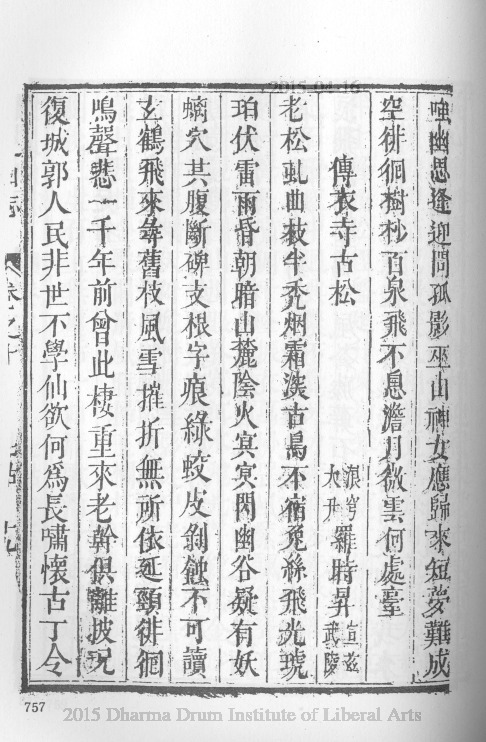 幽思逢迎問孤影巫山神女應歸來短夢難成
空徘徊樹杪百泉飛不息澹月微雲何處臺
傳衣寺古松
羅時昇
老松虬曲枝半禿烟霜滅古鳥不宿兔絲飛光琥
珀伏雷雨昏朝暗山麓陰火冥冥閃幽谷疑有妖
螭穴其腹斷碑支根字痕綠蛟皮剝蝕不可讀
玄鶴飛來尋舊枝風雪摧折無所依延頸徘徊
鳴聲悲一千年前曾此棲重來老幹俱離披况
復城郭人民非世不學仙欲何爲長嘯懷古丁令
757
2015 Dharma Drum Institute of Liberal Arts
2015-04-16